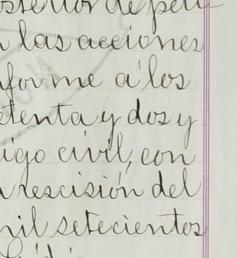 osterior de peti
las acciones
forme a los
etenta y dos y
igo civil, con
rescisión del
mil setecientos